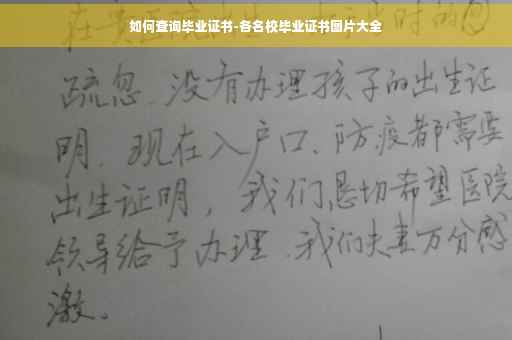 如何查询毕业证书-各名校毕业证书图片大全
疏忽、没有办理孩子的出生证
明、现在入户口、防疫都需要
出生证明，我们恳切希望医院
领导给予办理、我们夫妻万分感
激。